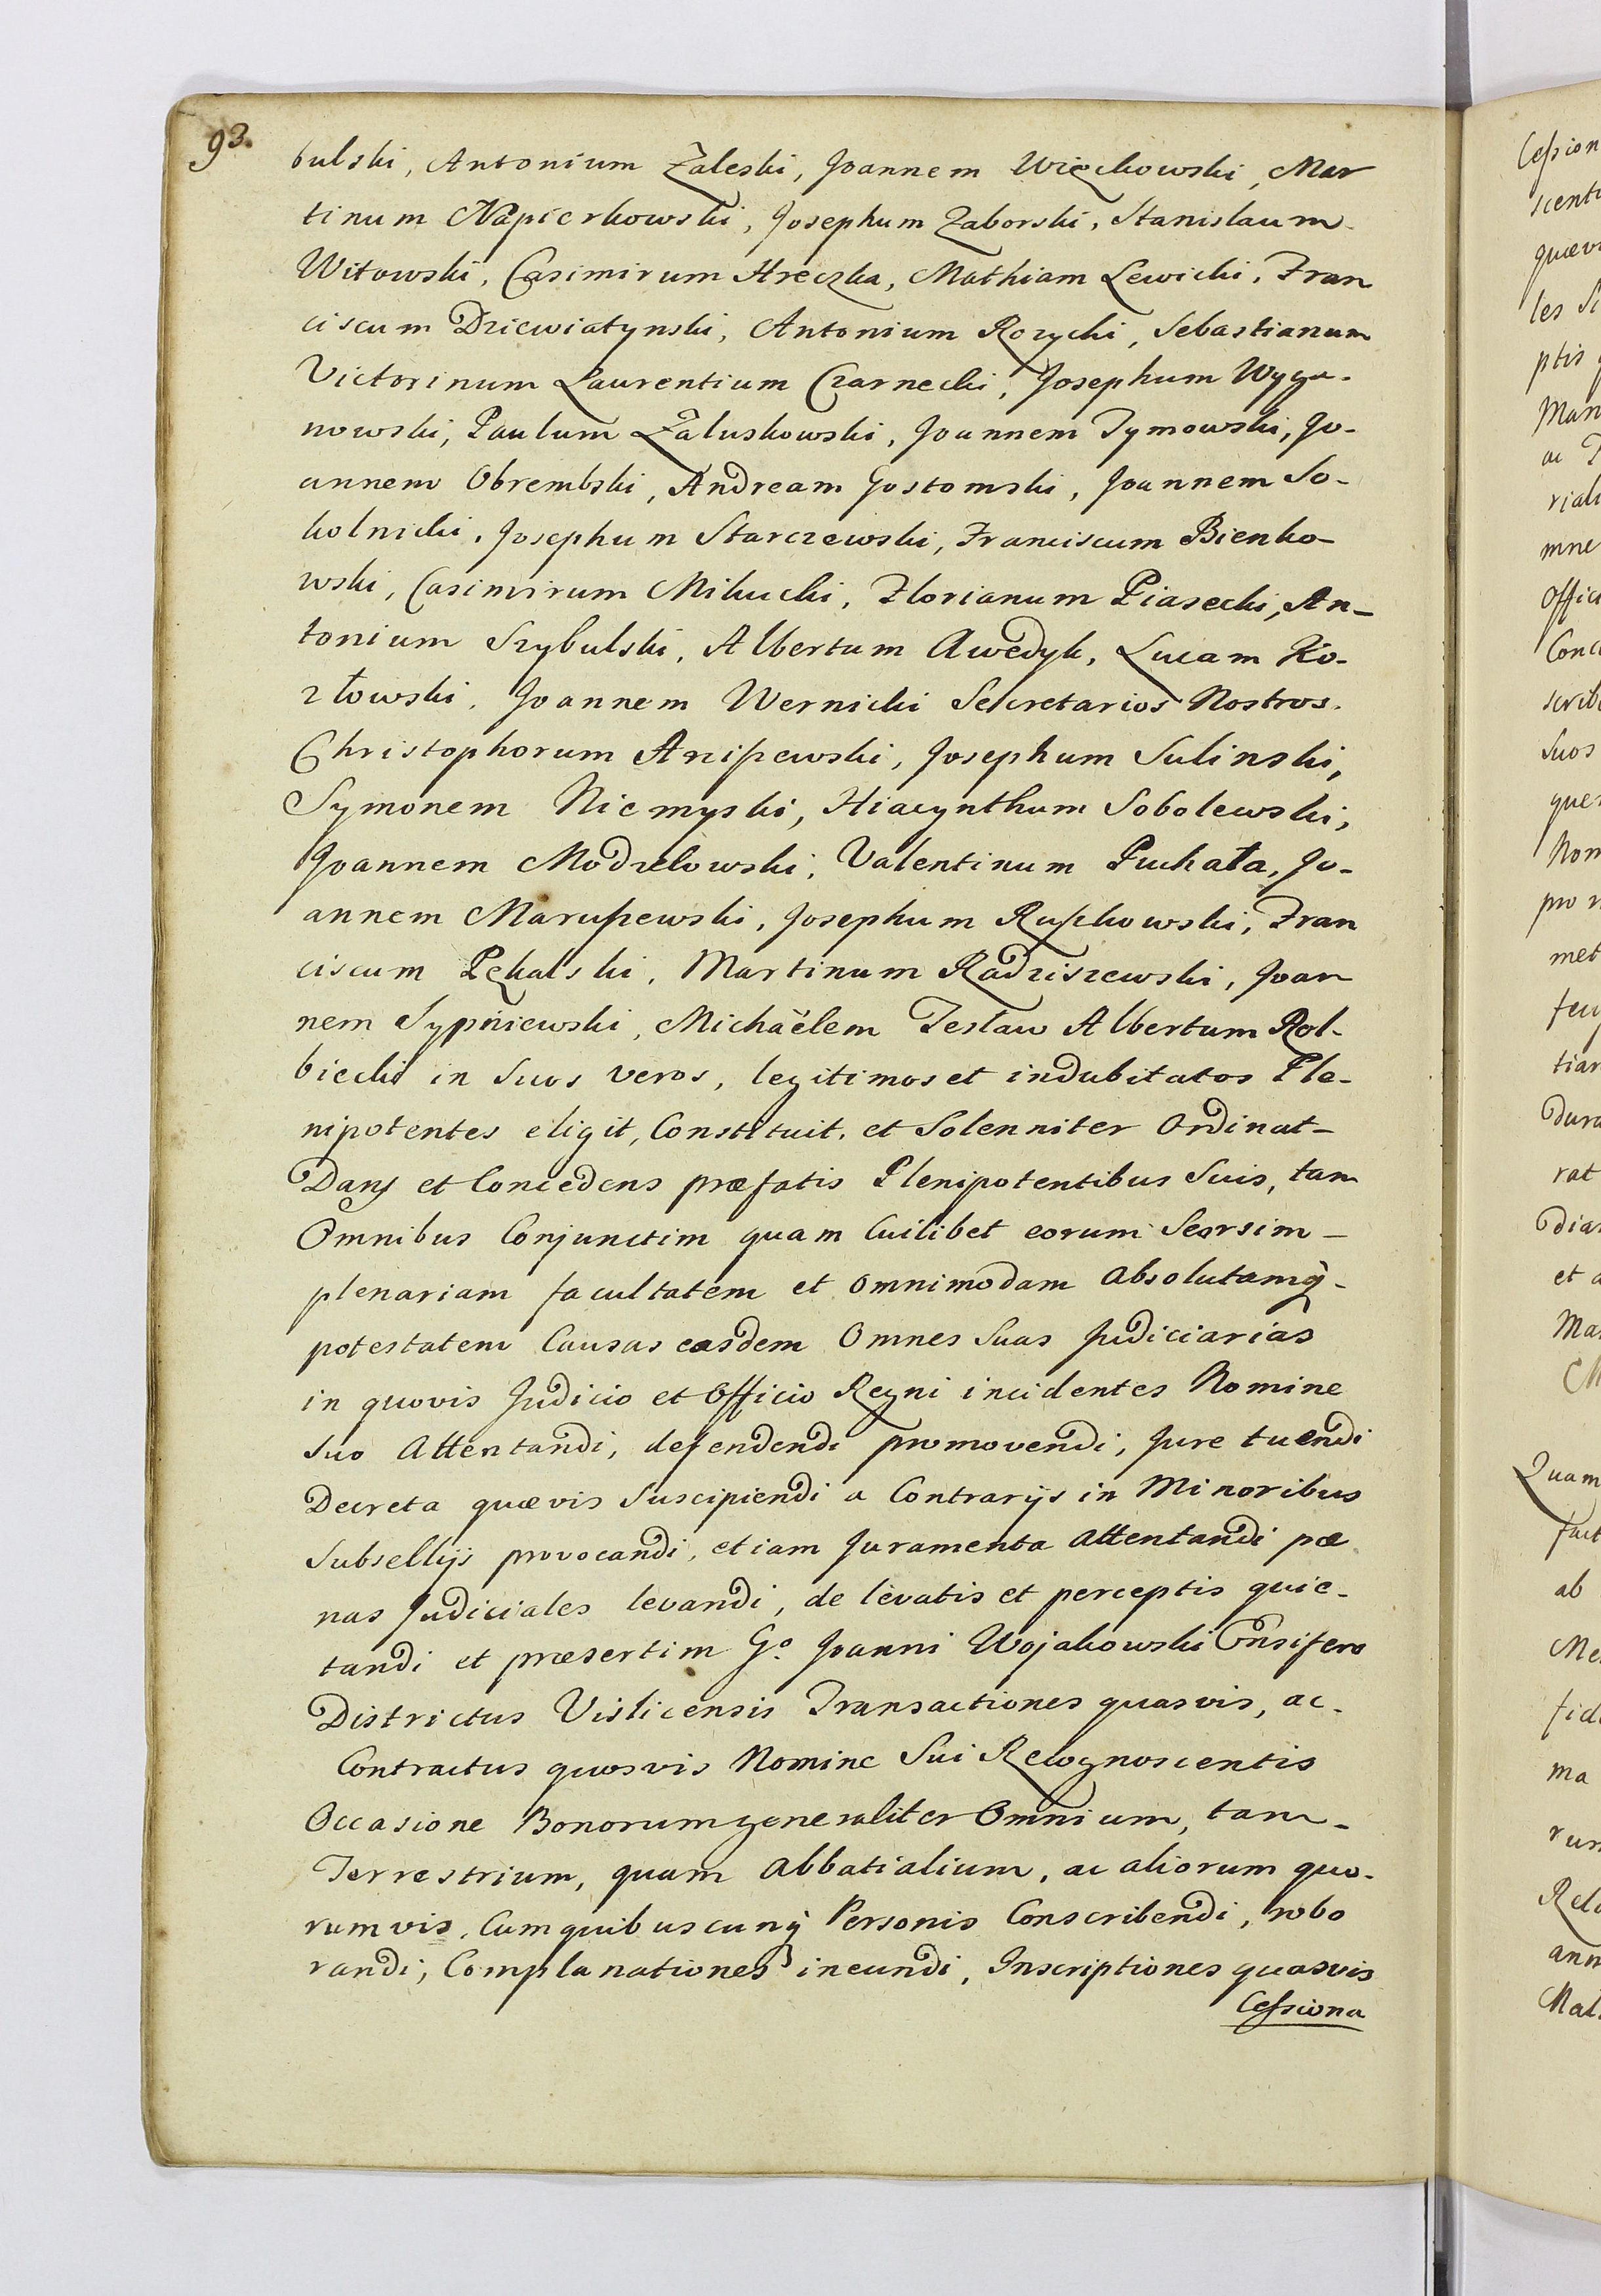 93.
bulski, Antonium Zaleski, Joannem Więckowski, Mar
tinum Napierkowski, Josephum Zaborski, Stanislaum
Witowski, Casimirum Hreczka, Mathiam Lewicki, Fran
ciscum Dziewiatynski, Antonium Rozycki, Sebastianum
Victorinum Laurentium Czarnecki, Josephum Wyga-
nowski, Paulum Załuskowski, Joannem Tymowski, Jo-
annem Obrembski, Andream Gostomski, Joannem So-
kolnicki, Josephum Starczewski, Franciscum Bienko-
wski, Casimirum Mikucki, Florianum Piasecki, An-
tonium Szybulski, Albertum Awedyk, Lucam Ko-
złowski, Joannem Wernicki Secretarios Nostros.
Christophorum Anißewski, Josephum Sulinski,
Symonem Niemyski, Hiacynthum Sobolewski,
Joannem Modzelowski, Valentinum Puchała, Jo-
annem Marußewski, Josephum Rußkowski, Fran
ciscum Pękalski, Martinum Radziszewski, Joan
nem Sypniewski, Michaëlem Teslaw Albertum Rol-
biecki in Suos veros, legitimos et indubitatos Ple-
nipotentes eligit, Constituit, et Solenniter Ordinat-
Dans et Concedens præfatis Plenipotentibus Suis, tam
Omnibus Conjunctim quam Cuilibet eorum Seorsim-
plenariam facultatem et omnimodam absolutamq̃-
potestatem Causas easdem Omnes Suas Judiciarias
in quovis Judicio et Officio Regni incidentes Nomine
Suo Attentandi, defendendi promovendi, Jure tuendi
Decreta quævis Suscipiendi a Contrarijs in Minoribus
Subsellijs provocandi, etiam Juramenta attentandi pæ
nas Judiciales levandi, de levatis et perceptis quie-
tandi et præsertim Gº. Joanni Wojakowski Ensifero
Districtus Vislicensis Transactiones quasvis, ac-
Contractus quosvis Nomine Sui Recognoscentis
Occasione Bonorum generaliter Omnium, tam-
Terrestrium, quam Abbatialium, ac aliorum quo-
rumvis, Cum quibuscunq̃ Personis Conscribendi, robo
randi, Complanationes ineundi, Inscriptiones quasvis
Cessiona